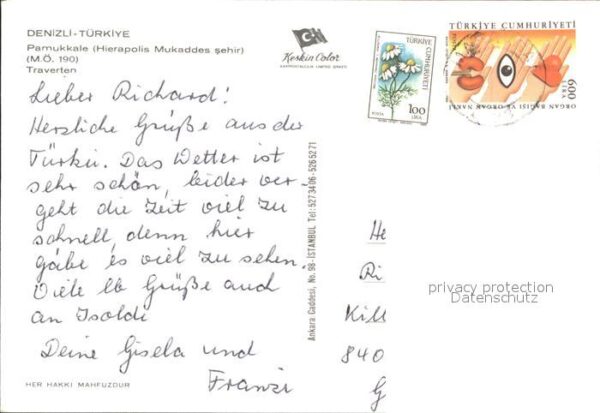 DENİZLİ-TÜRKİYE
Pamukkale (Hierapolis Mukaddes şehir)
(M.Ö. 190)
Traverten
Keskin Color
KARTPOSTALCILIK LIMITED ŞİRKETİ
TÜRKİYE
CUMHURİYETİ
POSTA
100
LİRA
TÜRKİYE CUMHURİYETİ
600
LİRA
ORGAN BAĞIŞI VE ORGAN NAKLİ
Lieber Richard!
Herzliche Grüße aus der
Türkii. Das Wetter ist
sehr schön, leider ver-
geht die Zeit viel zu
schnell, denn hier
gäbe es viel zu sehen.
Viele lb Grüße auch
an Isolde
Deine Gisela und
Franzi
HER HAKKI MAHFUZDUR
Ankara Caddesi, No. 98-İSTANBUL Tel: 527 34 06-526 52 71
He
Ri
Kill
840
G
privacy protection
Datenschutz